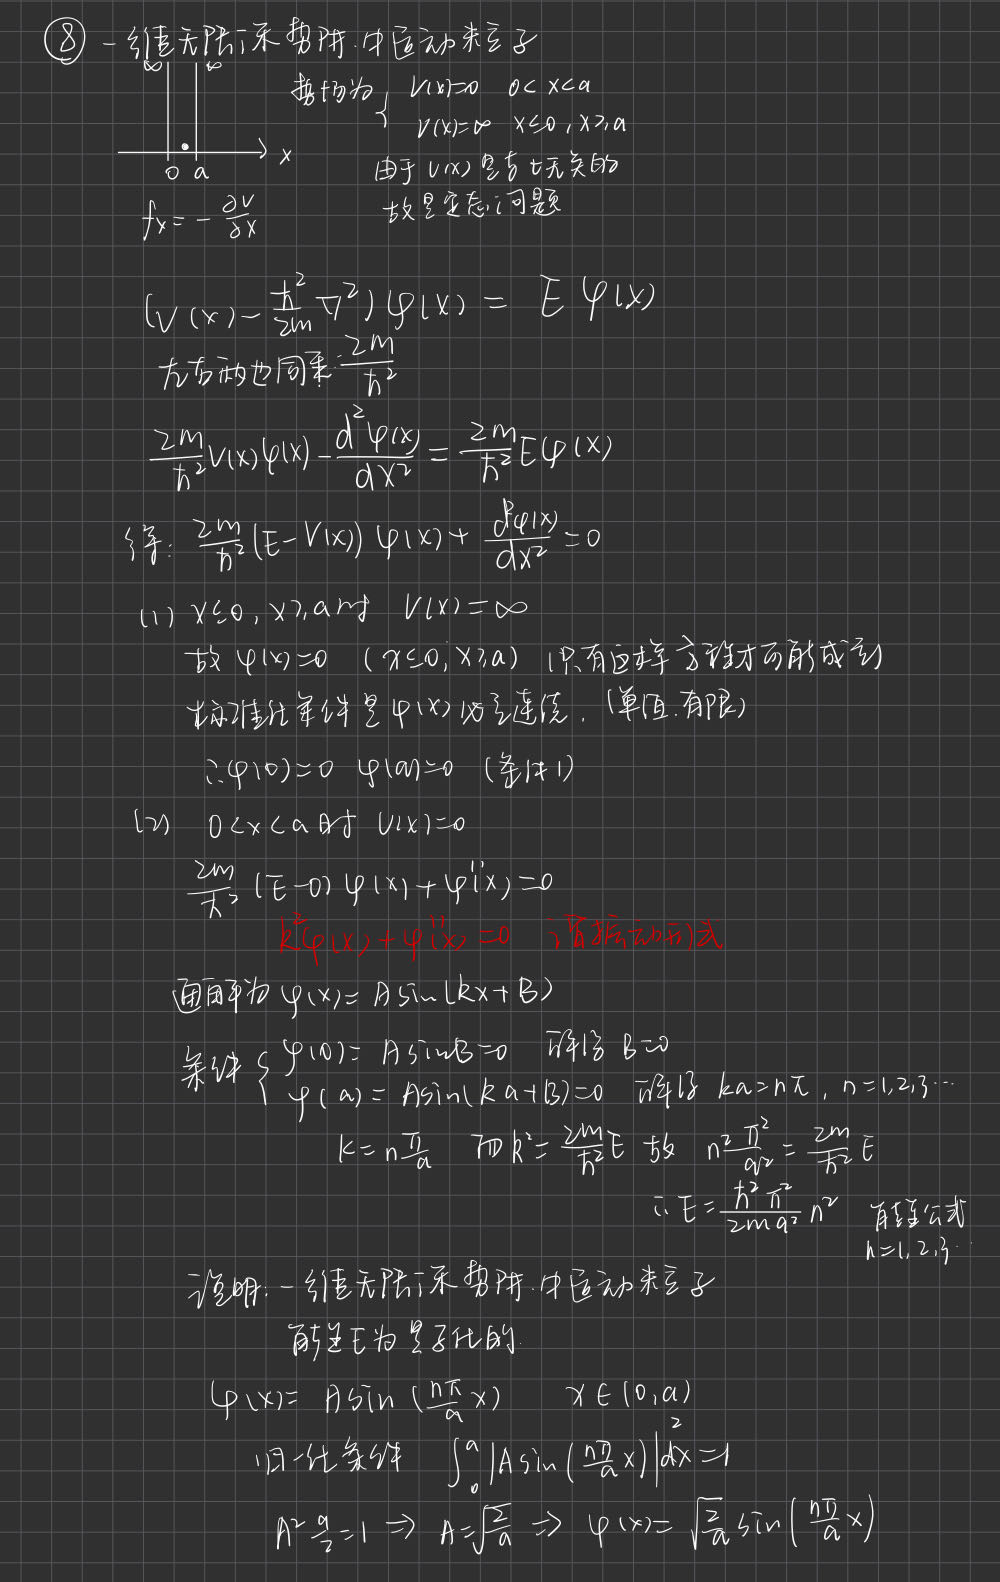 ⑧ 一维无限深势阱中运动粒子
∞ ∞
势场为 { V(x)=0 0<x<a
V(x)=∞ x≤0, x≥a
0 a x
由于V(x)是与t无关的
故是定态问题
fx = -∂V/∂x
(V(x) - ħ²/2m ∇²) φ(x) = E φ(x)
左右两边同乘 2m/ħ²
2m/ħ² V(x)φ(x) - d²φ(x)/dx² = 2m/ħ² Eφ(x)
得: 2m/ħ² (E-V(x)) φ(x) + d²φ(x)/dx² = 0
(1) x≤0, x≥a时 V(x)=∞
故 φ(x)=0 (x≤0, x≥a) (只有这样方程才可能成立)
标准化条件是φ(x)必须连续. (单值.有限)
∴φ(0)=0 φ(a)=0 (条件1)
(2) 0<x<a时 V(x)=0
2m/ħ² (E-0) φ(x) + φ''(x) = 0
k²φ(x) + φ''(x) = 0 谐振动形式
通解为 φ(x) = A sin(kx+B)
条件 { φ(0) = A sinB = 0 解得 B=0
φ(a) = A sin(ka+B) = 0 解得 ka=nπ, n=1,2,3…
k = n π/a 而 k² = 2m/ħ² E 故 n² π²/a² = 2m/ħ² E
∴ E = ħ²π²/2ma² n² 能量公式
n=1,2,3…
说明: 一维无限深势阱中运动粒子
能量E为量子化的.
φ(x) = A sin(nπ/a x) x∈(0,a)
归一化条件 ∫₀ᵃ |A sin(nπ/a x)|² dx = 1
A² a/2 = 1 ⇒ A = √(2/a) ⇒ φ(x) = √(2/a) sin(nπ/a x)